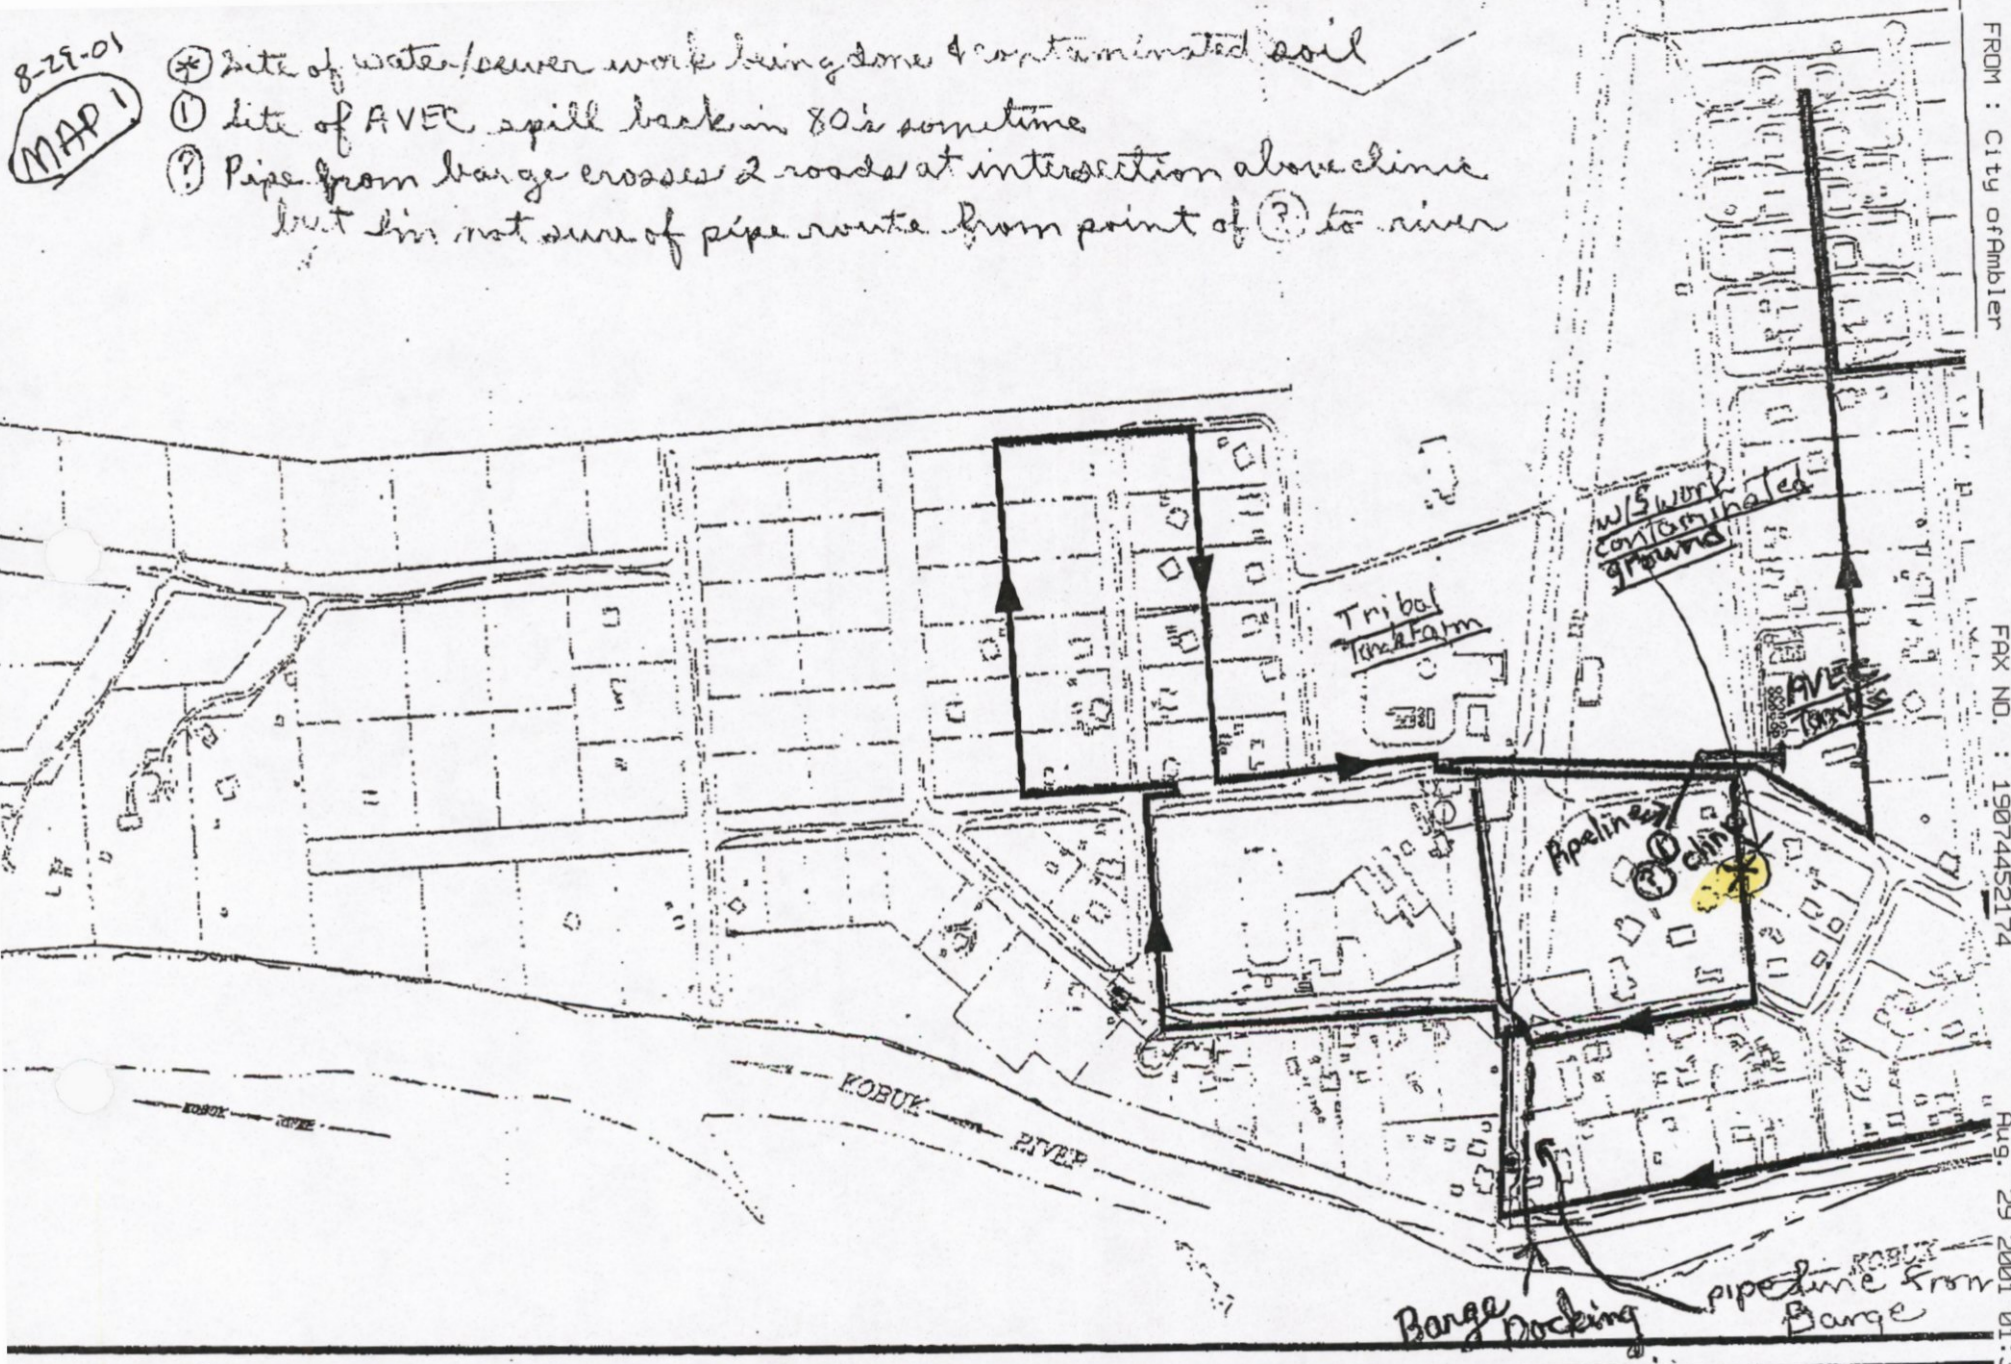 8-29-01
MAP 1
* Site of water/sewer work being done & contaminated soil
① Site of AVEC spill back in 80's sometime
? Pipe from barge crosses 2 roads at intersection above clinic
but I'm not sure of pipe route from point of ? to river
FROM : City ofAmbler
FAX NO. : 19074452174
Aug. 29 2001 01:
W/S work
contaminated
ground
Tribal
Tank Farm
AVEC
Tanks
Pipeline
①
clinic
?
*
KOBUK RIVER
KOBUK RIVER
KOBUK
pipeline from
Barge
Barge
Docking